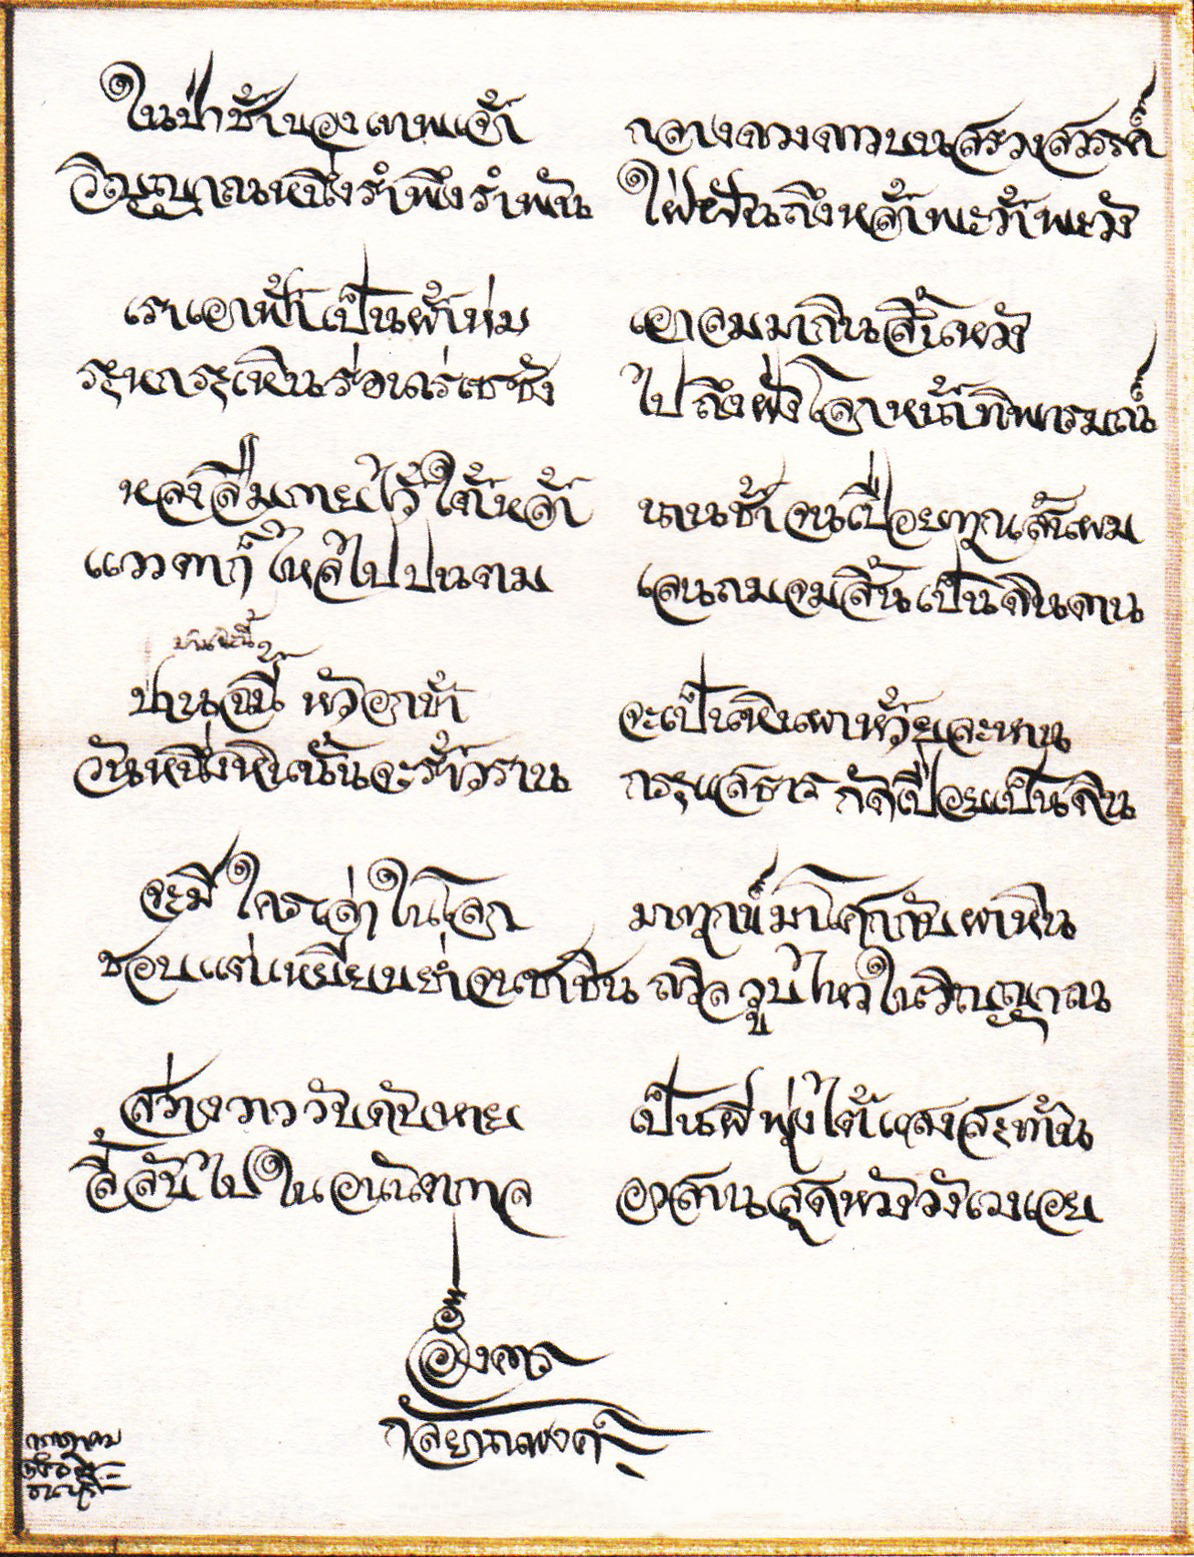 ในป่าช้าของเทพเจ้า กลางดวงดาวบนสรวงสวรรค์
วิญญาณหนึ่งรำพึงรำพัน ใฝ่ฝันถึงหล้าพะว้าพะวัง
เราเอาฟ้าเป็นผ้าห่ม เอาลมมากินสิ้นหวัง
ระหกระเหินร่อนเร่เซซัง ไปถึงฝั่งโลกหน้าทิพารมณ์
หลงลืมกายไว้ใต้หล้า นานช้าจนเปื่อยทุกเส้นผม
แววตาก็ไหลไปปนตม เลนถมจมสิ้นเป็นดินดาน
ป่านฉะนี้
ป่านฉนี้ หัวอกช้ำ จะเป็นหินผาห้วยละหาน
วันหนึ่งหินนั้นจะร้าวราน กระแสธารกัดเปื่อยเป็นดิน
จะมีใครเล่าในโลก มาทุกข์มาโศกกับผาหิน
ชอบแต่เหยียบย่ำจนชาชิน ถวิลวูบไหวในวิญญาณ
สว่างวาววับดับหาย เป็นผีพุ่งไต้แสงสะท้าน
ลี้ลับไปในอนันตกาล อวสานสุดหวังวังเวงเอย
อังคาร
กัลยาณพงศ์
กรกฎาคม